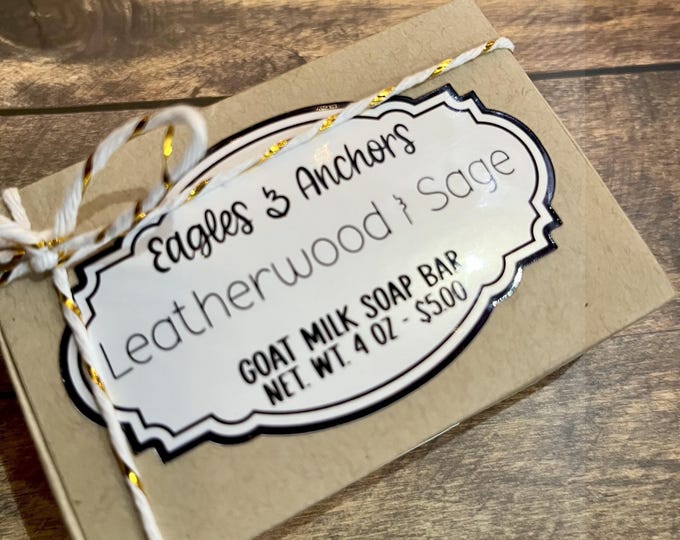 Eagles & Anchors
Leatherwood & Sage
GOAT MILK SOAP BAR
NET. WT. 4 OZ - $5.00